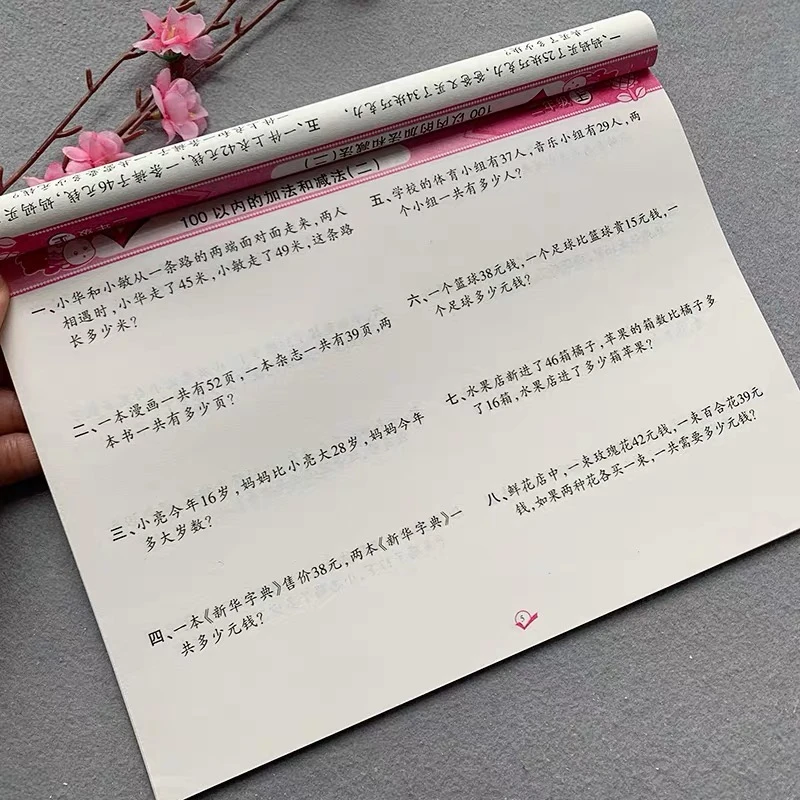 一、妈妈买了25块巧克力，爸爸又买了34块巧克力，
一共买了多少块？
五、一件上衣42元钱，一条裤子46元钱，妈妈买
100以内的加法和减法(二)
100以内的加法和减法(二)
一、小华和小敏从一条路的两端面对面走来，两人
相遇时，小华走了45米，小敏走了49米，这条路
长多少米？
二、一本漫画一共有52页，一本杂志一共有39页，两
本书一共有多少页？
三、小亮今年16岁，妈妈比小亮大28岁，妈妈今年
多大岁数？
四、一本《新华字典》售价38元，两本《新华字典》一
共多少元钱？
五、学校的体育小组有37人，音乐小组有29人，两
个小组一共有多少人？
六、一个篮球38元钱，一个足球比篮球贵15元钱，一
个足球多少元钱？
七、水果店新进了46箱橘子，苹果的箱数比橘子多
了16箱，水果店进了多少箱苹果？
八、鲜花店中，一束玫瑰花42元钱，一束百合花39元
钱，如果两种花各买一束，一共需要多少元钱？
5